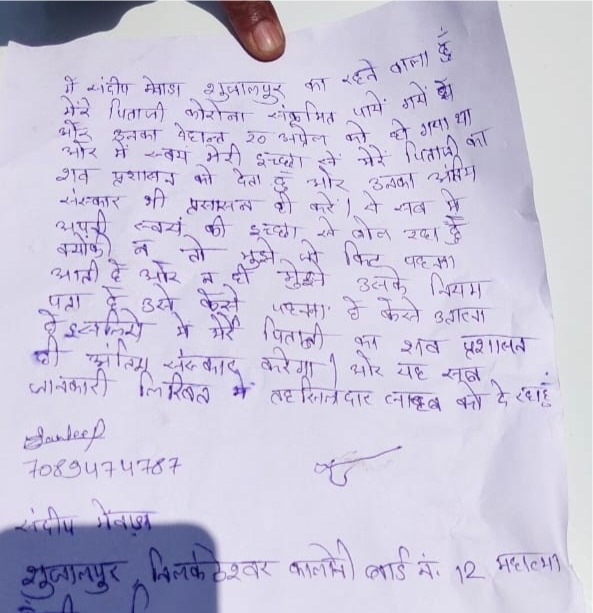 में संदीप मेवाडा शुजालपुर का रहने वाला हुँ
मेंरे पिताजी कोरोना संक्रमित पायें गयें थे
ओर इनका देहान्त २० अप्रेल को हो गया था
ओर में स्वयं मेरी इच्छा सें मेंरे पिताजी का
शव प्रशासन को देता हुँ ओर उनका अंतिम
संस्कार भी प्रसासन ही करें। ये सब में
अपनी स्वयं की इच्छा से बोल रहा हुँ
क्योकी न तो मुझे पी किट पहनना
आती हैं ओर न ही मुझे उसके नियम
पता हैं उसे केसे पहनना है केसे उतारना
हैं इसलिये में मेंरे पिताजी का शव प्रशासन
ही अंतिम संस्कार करेगा। ओर यह सब
जानकारी लिखित में तहसिलदार साहब को दे रहाहुं
Sandeep
7089474787
संदीप मेंवाडा
शुजालपुर, तिलकेश्वर कालोनी वार्ड नं. 12 महात्मा